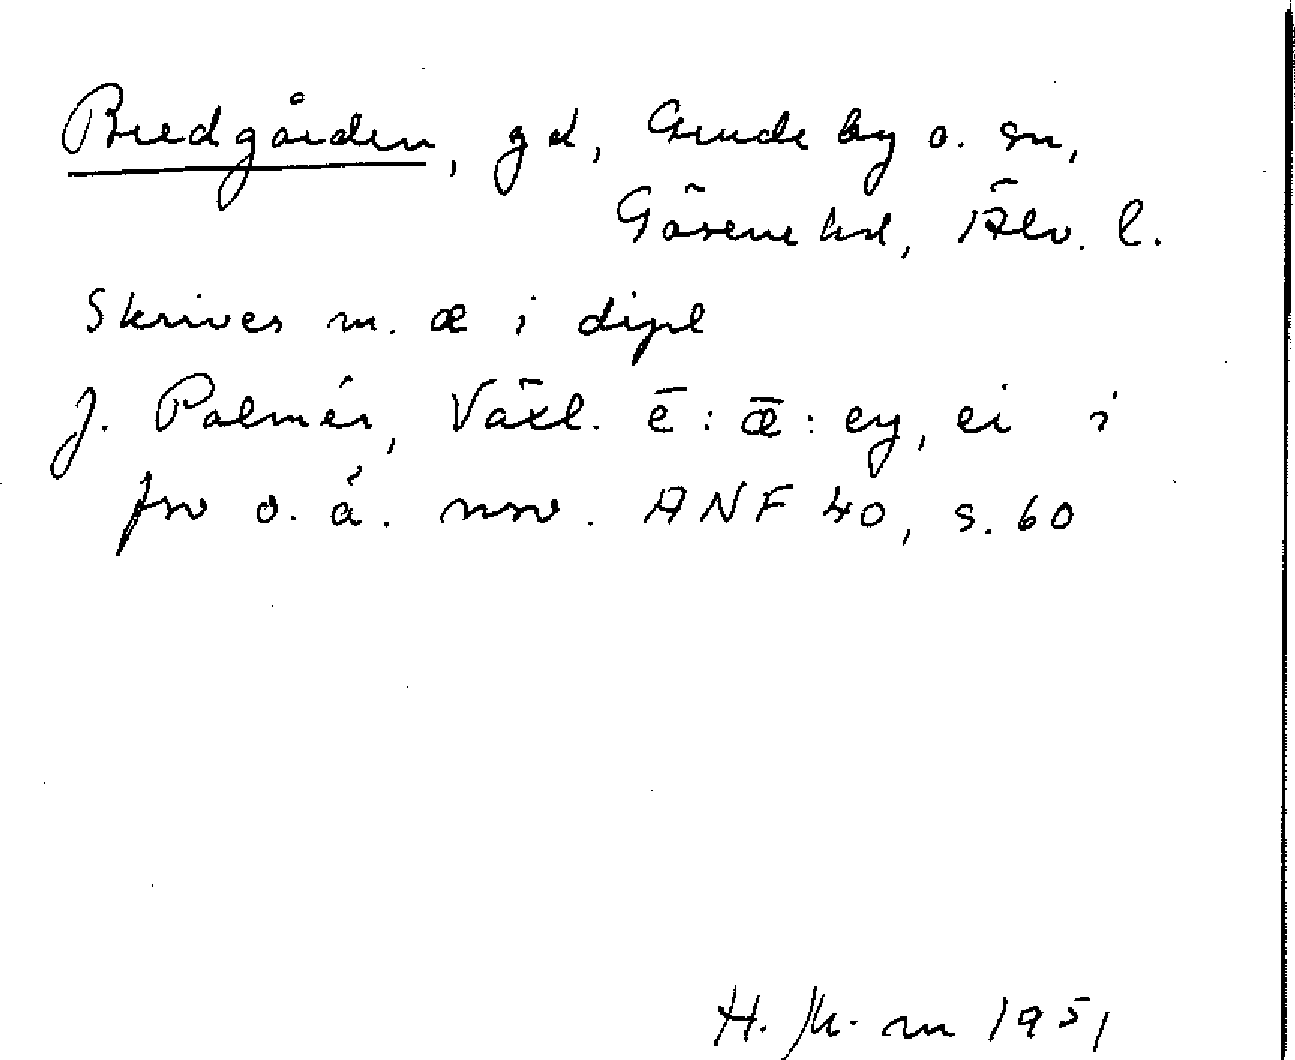 Bredgården, gd, Grude by o. sn,
Gäsene hd, Älv. l.
Skrives m. æ i dipl
J. Palmér, Växl. ē : ǣ : ey, ei i
fsv o. ä. nsv. ANF 40, s. 60
H. 1951